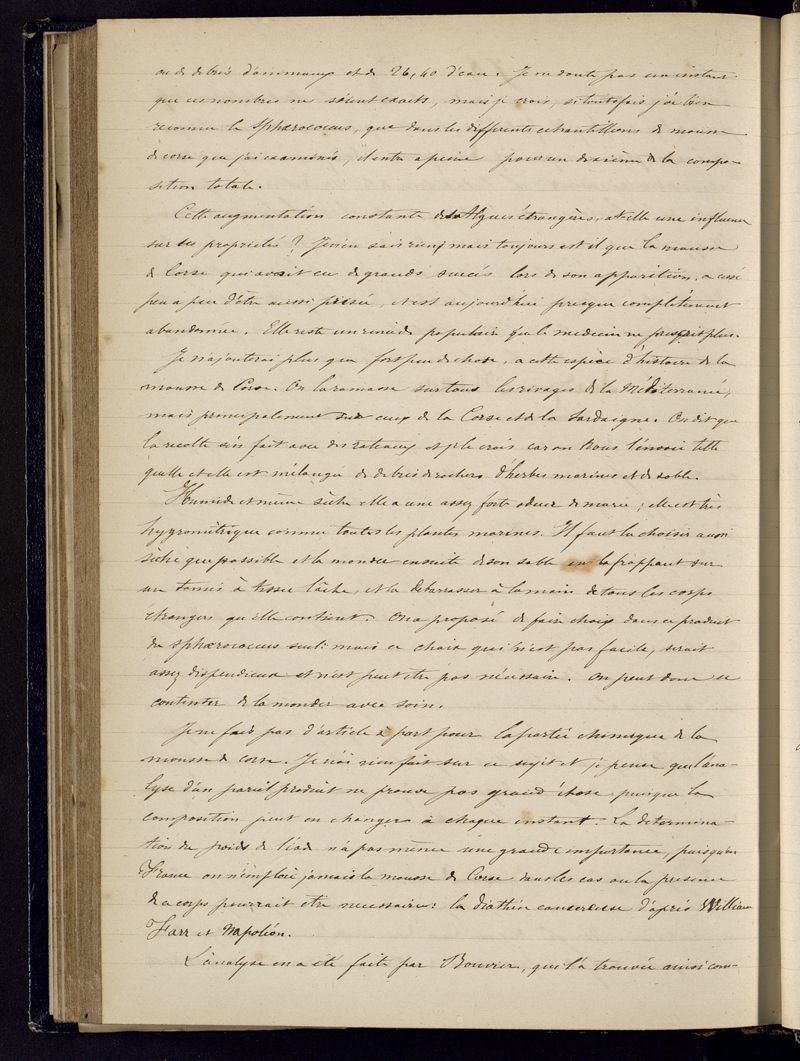 ou de debris d'animaux et de 26,40 d'eau. Je ne doute pas un instant
que ces nombres ne soient exacts, mais je crois, si toutefois j'ai bien
reconnu le Sphærococcus, que dans les differents echantillons de mousse
de corse que j'ai examinés, il entre a peine pour un dixième de la compo-
sition totale.
Cette augmentation constante des Algues étrangères, a-t-elle une influence
sur ses propriétés ? Je n'en sais rien, mais toujours est il que la mousse
de Corse qui avait eu de grands succès lors de son apparition, a cessé
peu a peu d'être aussi prisée, et est aujourd'hui presque complètement
abandonnée. Elle reste un remède populaire que le medecin ne prescrit plus.
Je n'ajouterai plus que fort peu de chose, a cette espèce d'histoire de la
mousse de Corse. On la ramasse sur tous les rivages de la Méditerranée,
mais principalement sur ceux de la Corse et de la Sardaigne. On dit que
la recolte s'en fait avec des rateaux et je le crois car on nous l'envoie telle
quelle et elle est mélangée de debris de rochers d'herbes marines et de sable.
Humide et même sèche elle a une assez forte odeur de marée ; elle est très
hygrométrique comme toutes les plantes marines. Il faut la choisir aussi
sèche que possible et la monder ensuite de son sable en la frappant sur
un tamis à tissu lâche, et la debarrasser à la main de tous les corps
étrangers qu'elle contient. On a proposé de faire choix dans ce produit
du sphærococcus seul: mais ce choix qui n'est pas facile, serait
assez dispendieux et n'est peut etre pas nécessaire. On peut donc se
contenter de la monder avec soin.
Je ne fais pas d'article à part pour la partie chimique de la
mousse de corse. Je n'ai rien fait sur ce sujet et je pense que l'ana-
lyse d'un pareil produit ne prouve pas grand chose, puisque la
composition peut en changer à chaque instant. La determina-
tion du poids de l'iode n'a pas même une grande importance, puisqu'en
France on n'emploie jamais la mousse de Corse dans les cas ou la presence
de ce corps pourrait etre necessaire: la diathèse cancereuse d'après William
Farr et Napoléon.
L'analyse en a été faite par Bouvier, qui l'a trouvée ainsi com-